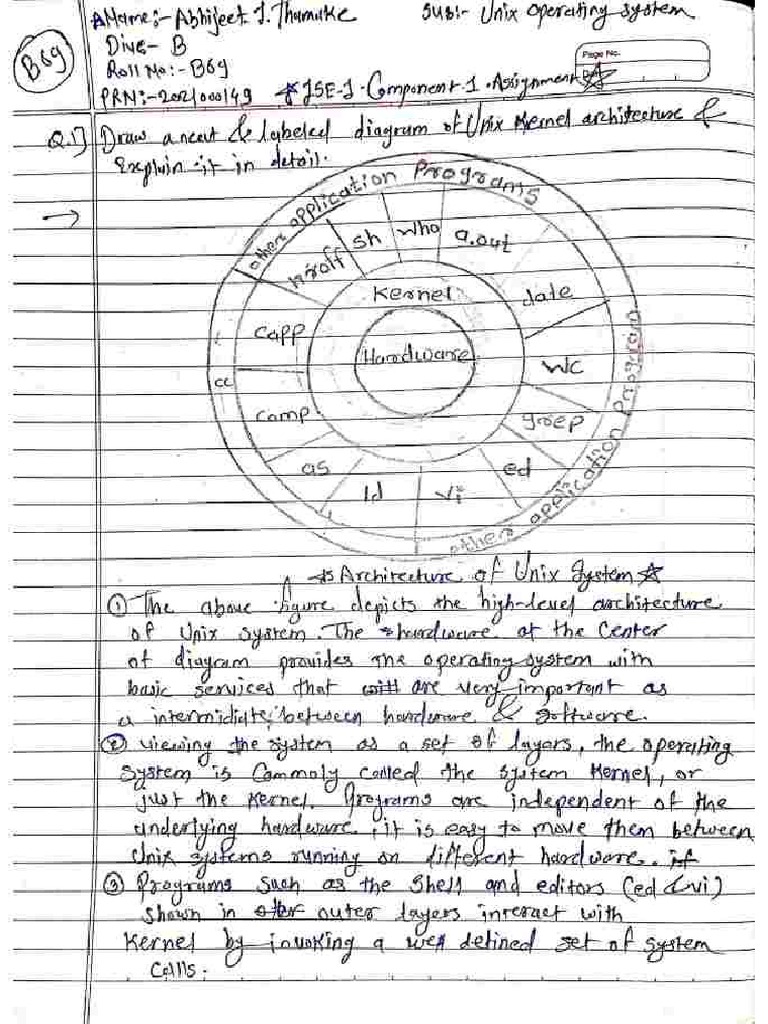 Name:- Abhijeet J. Thamake Sub:- Unix Operating System
Div:- B
B69
Roll No:- B69
Page No.
PRN:- 2021000149 ISE-I Component 1 Assignment
Q.1] Draw a neat & labeled diagram of Unix Kernel architecture &
Explain it in detail.
→
other application Programs
nroff sh who a.out
Kernel date
Hardware
cpp
cc
wc
comp
grep
as
ed
ld vi
other application Program
Architecture of Unix System
① The above figure depicts the high-level architecture
of Unix system. The hardware at the Center
of diagram provides the operating system with
basic services that are very important as
a intermidiate between hardware & software.
② Viewing the system as a set of layers, the operating
system is Commoly called the system Kernel, or
just the Kernel. Programs are independent of the
underlying hardware, it is easy to move them between
Unix systems running on different hardware. if
③ Programs such as the Shell and editors (ed & vi)
shown in outer layers interact with
Kernel by invoking a well defined set of system
calls.